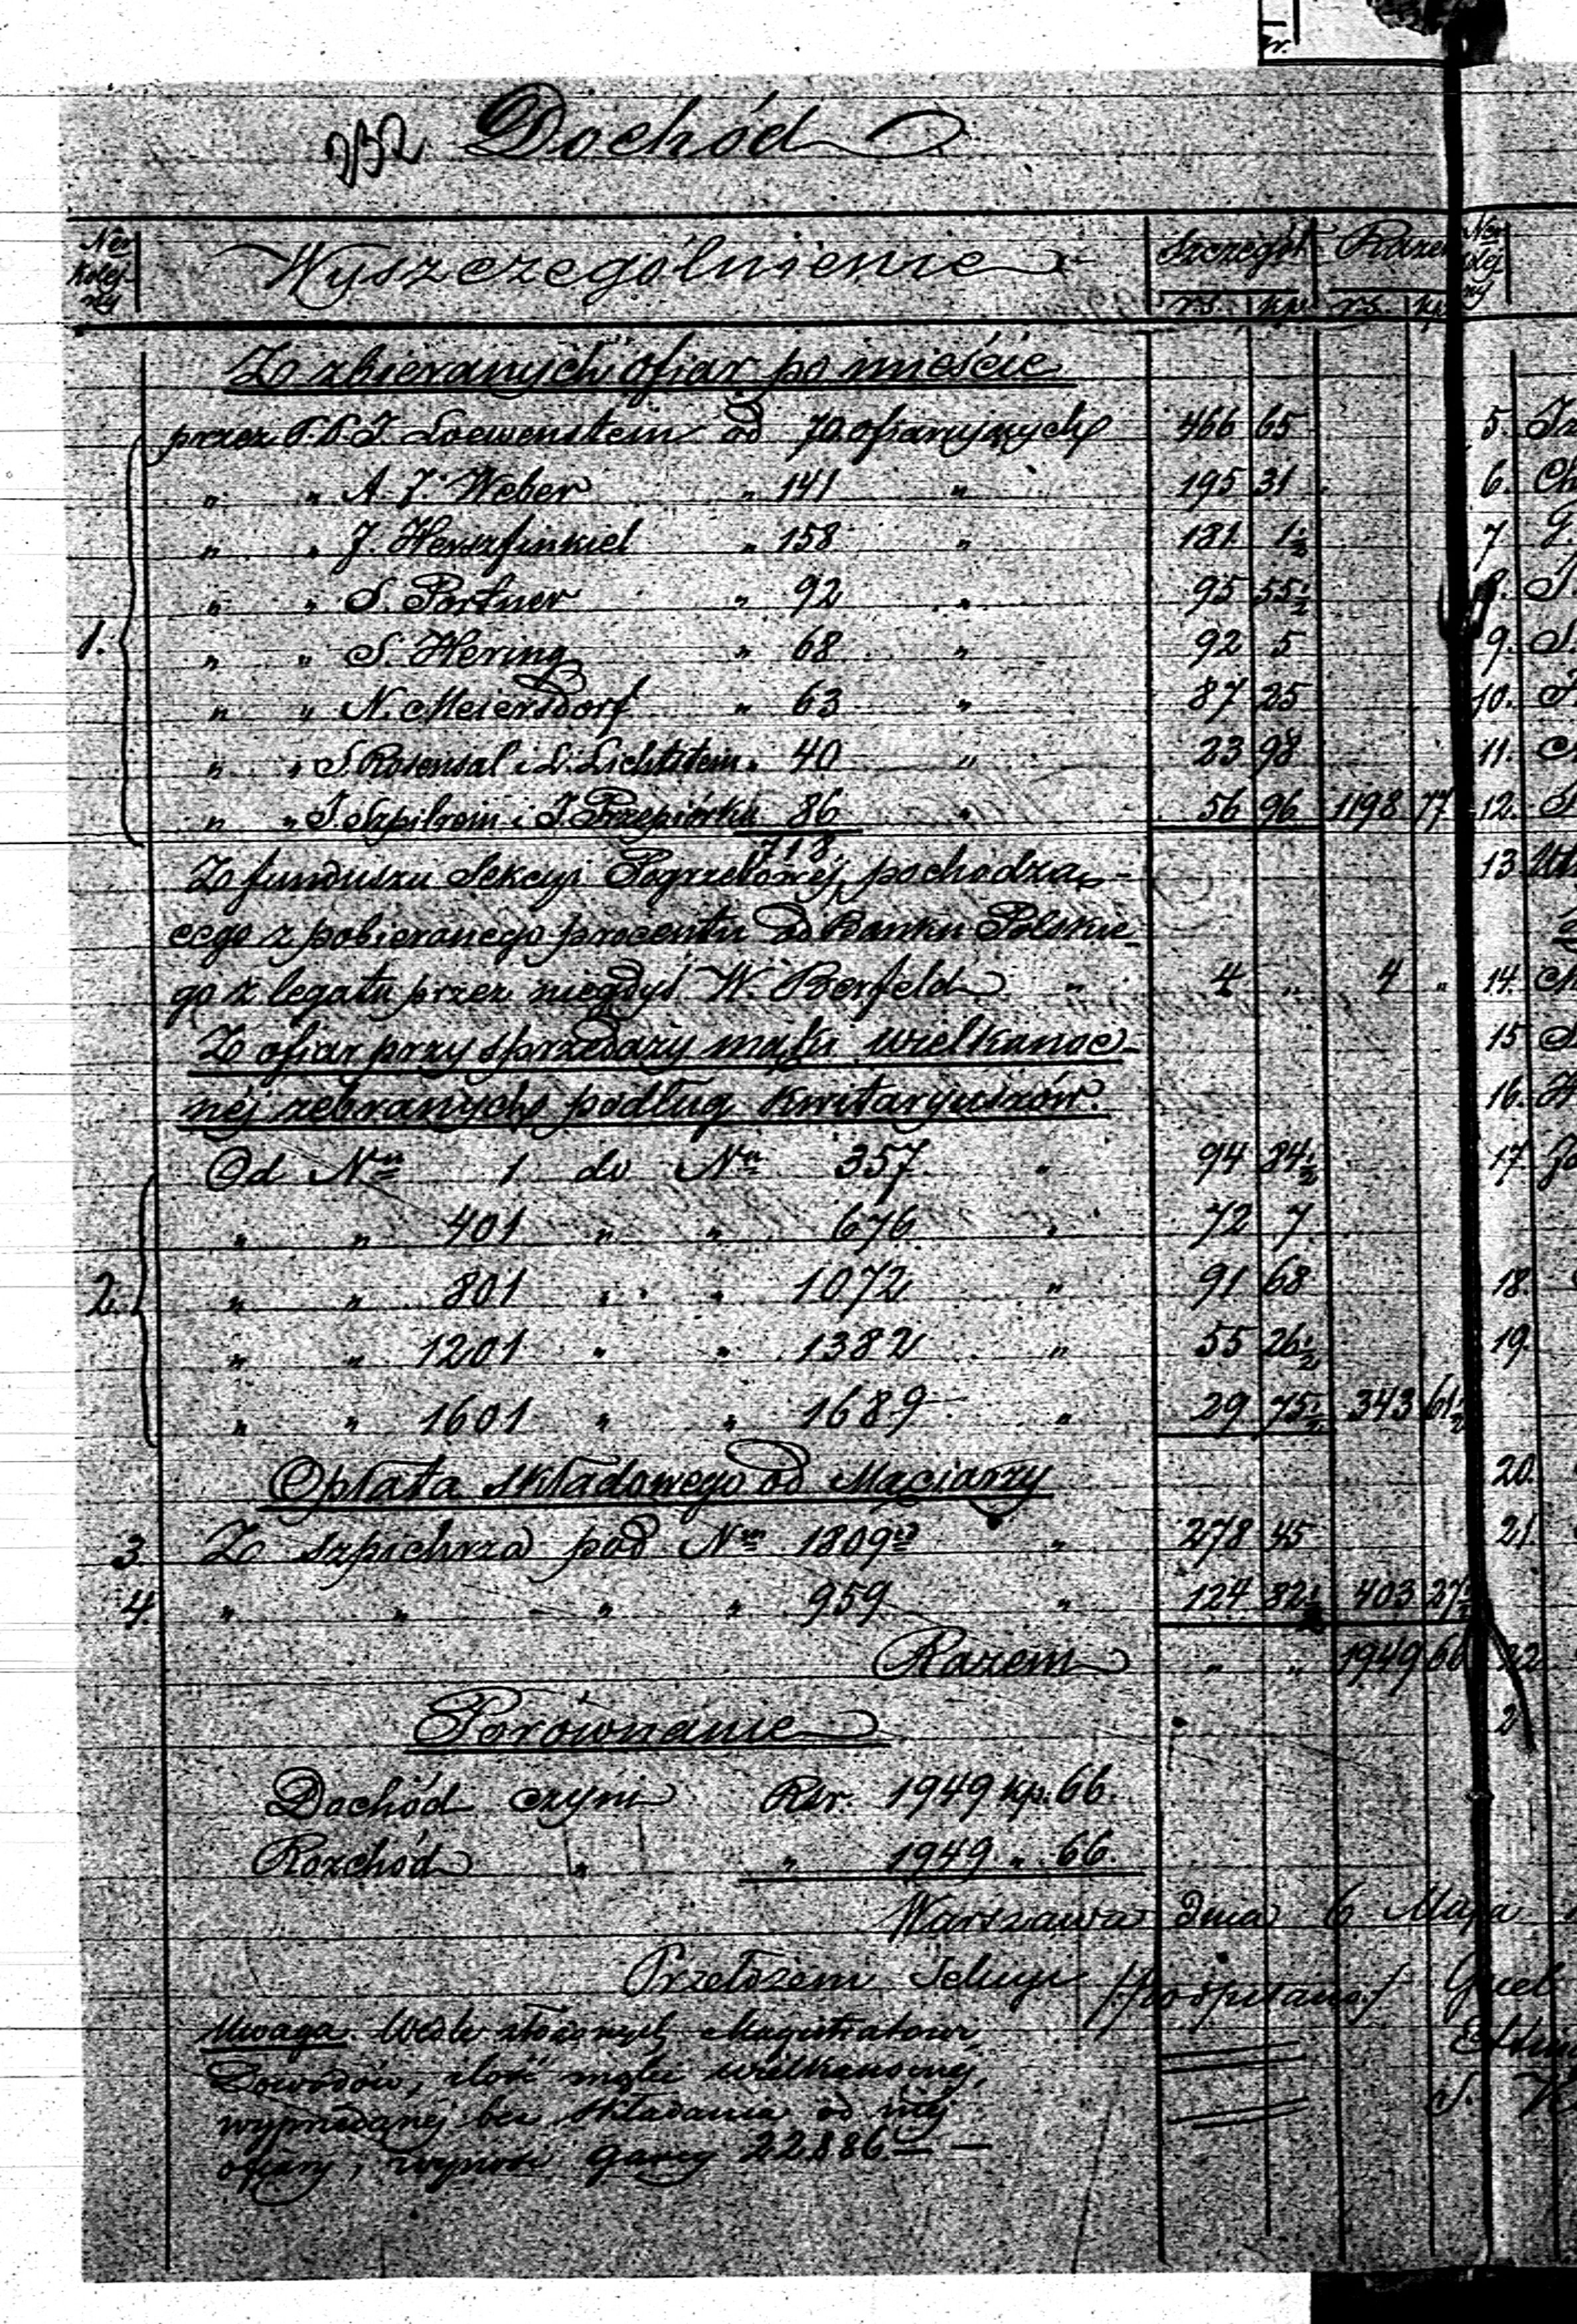 232 Dochód
Ner kolejny Wyszczególnienie Szczegół Razem
rs. kp. rs. kp.
Z zbieranych ofiar po mieście
1. przez P.P. J. Loewenstein od 70 ofiarujących 466 65
" " A. J. Weber " 141 " 195 31
" " J. Herszfinkiel " 158 " 181 1½
" " S. Portner " 92 " 95 55½
" " S. Hering " 68 " 92 5
" " N. Meiersdorf " 63 " 87 25
" " S. Rosensal i L. Lichtstein " 40 " 23 98
" " J. Szpilrein i J. Przepiórka 86 " 56 96 1198 77
718
Z funduszu Sekcyi Pogrzebowéj, pochodzą-
cego z pobieranego procentu od Banku Polskie-
go z legatu przez niegdyś W. Berfeld " 4 " 4 "
Z ofiar przy sprzedaży mąki wielkanoc-
néj zebranych podług Kwitaryuszów.
2. Od Nru 1 do Nru 357 " 94 84½
" " 401 " " 676 " 72 7
" " 801 " " 1072 " 91 68
" " 1201 " " 1382 " 55 26½
" " 1601 " " 1689 " 29 75½ 343 61½
Opłata składowego od Mąciarzy
3. Z szpichrza pod Nrm 1809 " 278 45
4. " " " " 959 " 124 82½ 403 27½
Razem " " 1949 66
Porównanie
Dochód czyni Rsr. 1949 kp. 66.
Rozchód " " 1949 " 66.
Warszawa dnia 6 Maja
Przełożeni Sekcyi /podpisano/
Uwaga. Wedle złożonych Magistratowi
Dowodów, ilość mąki wielkanocnéj,
wyprzedanéj bez składania od niéj
ofiary, wynosi garcy 22886 — —
5.
6.
7
8.
9.
10.
11.
12.
13
14.
15
16.
17
18.
19.
20.
21.
22